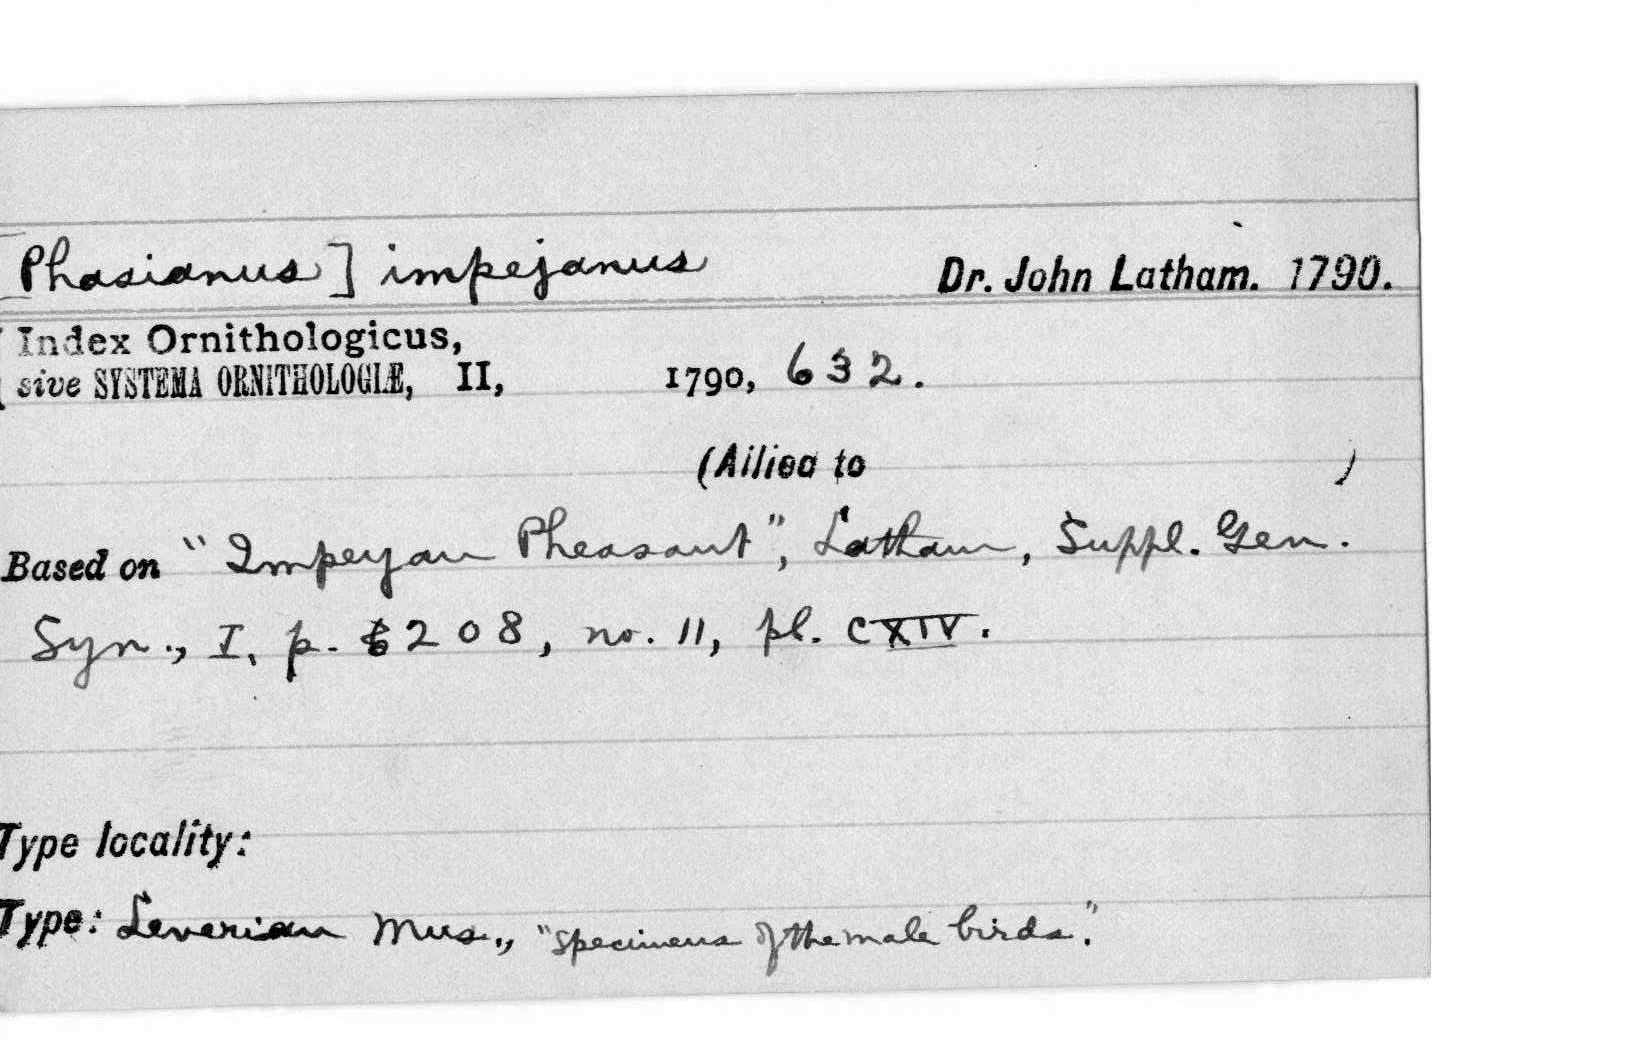 [Phasianus] impejanus Dr. John Latham. 1790.
Index Ornithologicus,
sive SYSTEMA ORNITHOLOGIÆ, II, 1790, 632.
(Allied to )
Based on "Impeyan Pheasant", Latham, Suppl. Gen.
Syn., I, p. 208, no. 11, pl. CXIV.
Type locality:
Type: Leverian Mus., "specimens of the male birds."